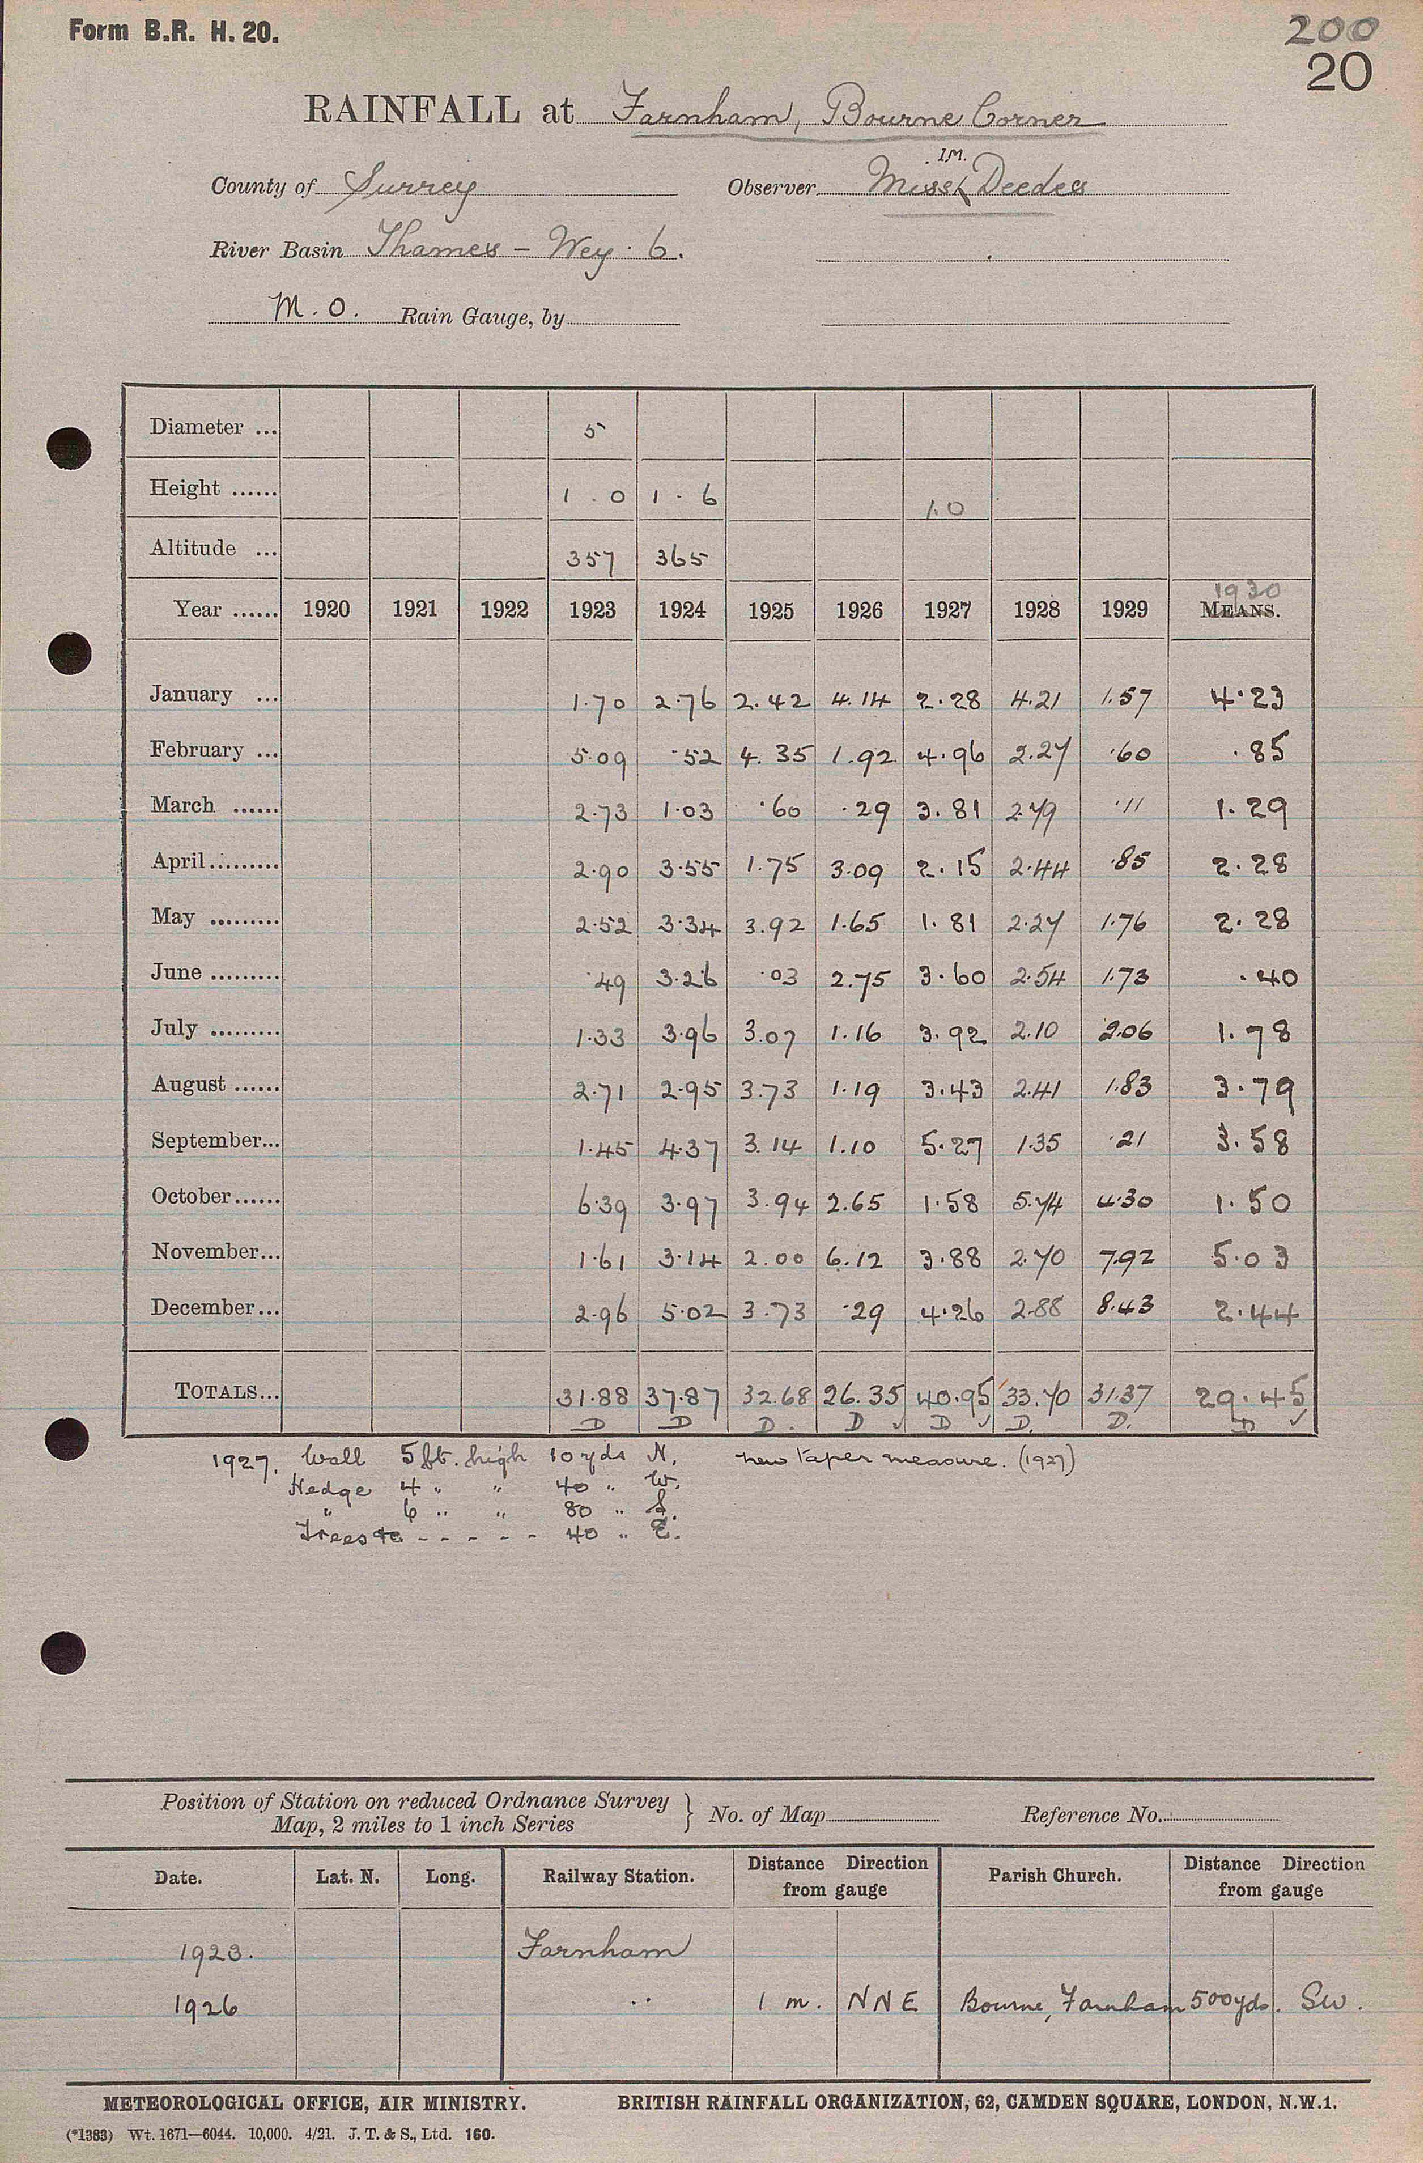 Form B.R. H. 20.
200
20
RAINFALL at Farnham, Bourne Corner
County of Surrey Observer Miss I.M. Deedes
River Basin Thames – Wey · 6.
M.O. Rain Gauge, by
Diameter ... 5
Height ...... 1.0 1.6 1.0
Altitude ... 357 365
1930
Year ...... 1920 1921 1922 1923 1924 1925 1926 1927 1928 1929 MEANS.
January ... 1.70 2.76 2.42 4.14 2.28 4.21 1.57 4.23
February ... 5.09 .52 4.35 1.92 4.96 2.27 .60 .85
March ...... 2.73 1.03 .60 .29 3.81 2.79 .11 1.29
April ......... 2.90 3.55 1.75 3.09 2.15 2.44 .85 2.28
May ......... 2.52 3.34 3.92 1.65 1.81 2.27 1.76 2.28
June ......... .49 3.26 .03 2.75 3.60 2.54 1.73 .40
July ......... 1.33 3.96 3.07 1.16 3.92 2.10 2.06 1.78
August ...... 2.71 2.95 3.73 1.19 3.43 2.41 1.83 3.79
September... 1.45 4.37 3.14 1.10 5.27 1.35 .21 3.58
October...... 6.39 3.97 3.94 2.65 1.58 5.74 4.30 1.50
November... 1.61 3.14 2.00 6.12 3.88 2.70 7.92 5.03
December... 2.96 5.02 3.73 .29 4.26 2.88 8.43 2.44
TOTALS... 31.88 37.87 32.68 26.35 40.95 33.70 31.37 29.45
D D D. D ✓ D ✓ D. D. D ✓
1927. Wall 5 ft. high 10 yds N. new taper measure. (1927)
Hedge 4 " " 40 " W.
" 6 " " 80 " S.
Trees - - - - - 40 " E.
Position of Station on reduced Ordnance Survey
Map, 2 miles to 1 inch Series } No. of Map Reference No.
Date. Lat. N. Long. Railway Station. Distance Direction from gauge Parish Church. Distance Direction from gauge
1923. Farnham
1926 " 1 m. NNE Bourne, Farnham 500 yds. SW.
METEOROLOGICAL OFFICE, AIR MINISTRY. BRITISH RAINFALL ORGANIZATION, 62, CAMDEN SQUARE, LONDON, N.W.1.
(*1383) Wt. 1671—6044. 10,000. 4/21. J. T. & S., Ltd. 160.